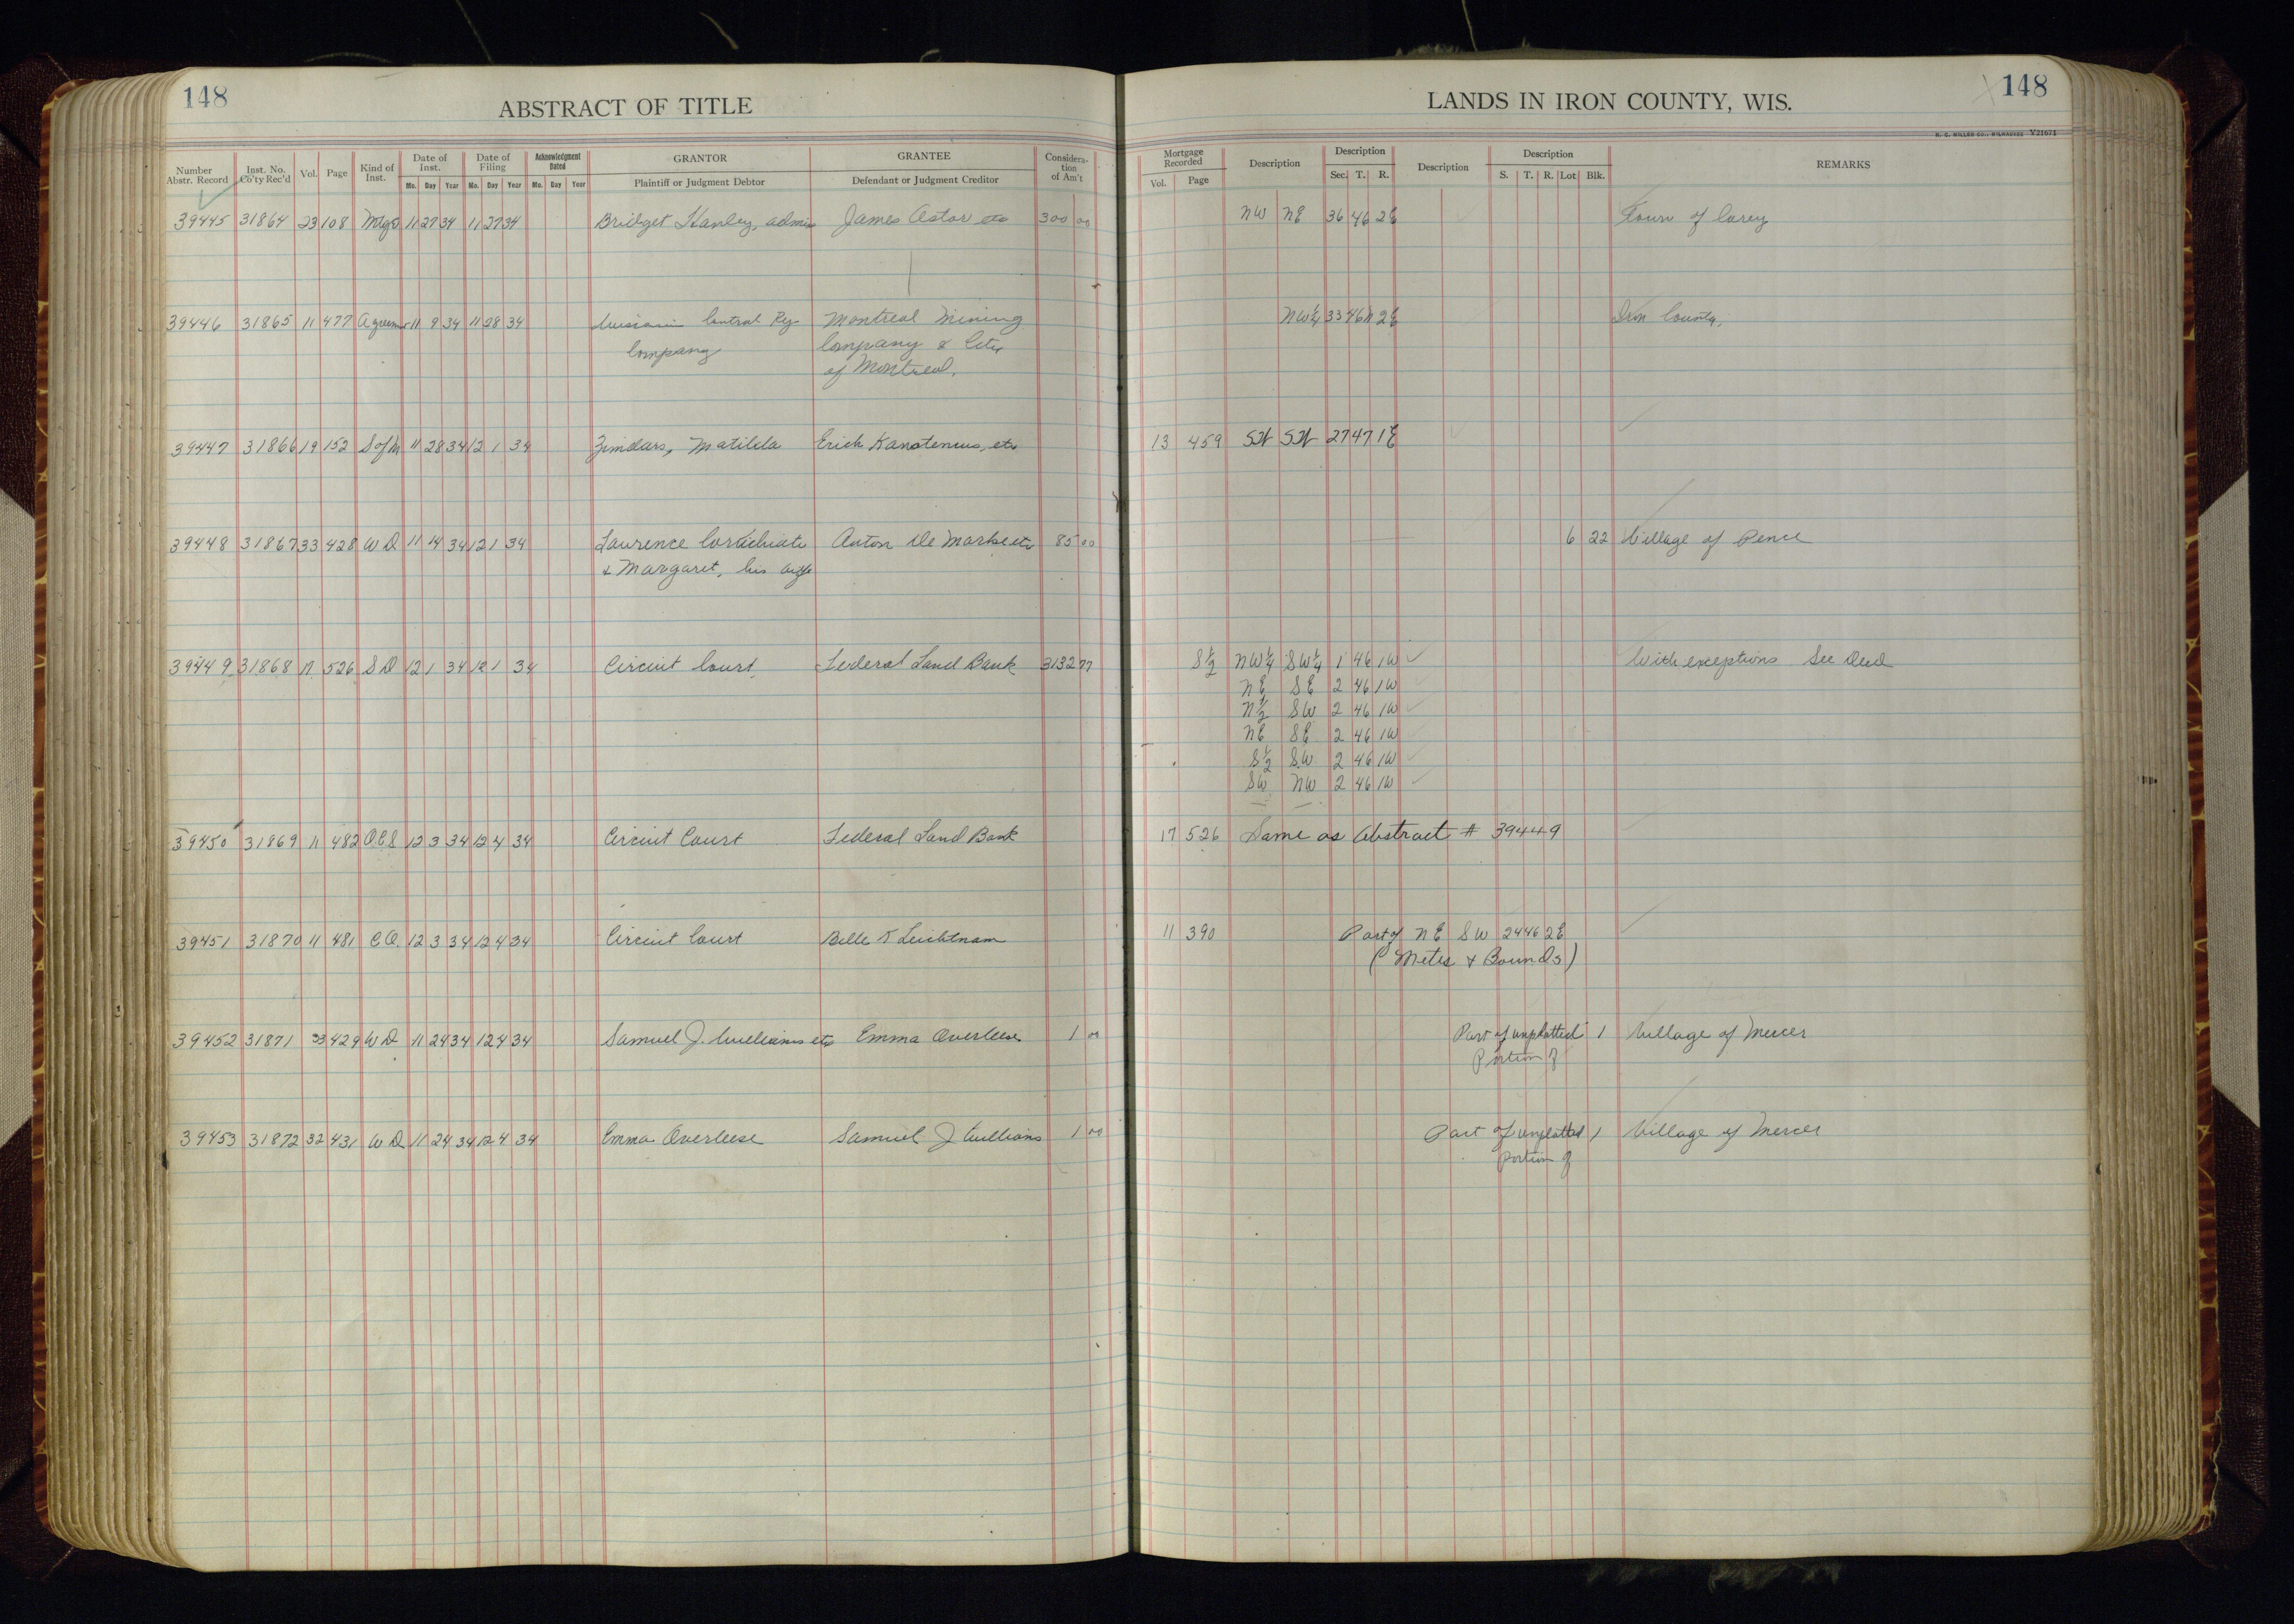 148
ABSTRACT OF TITLE
LANDS IN IRON COUNTY, WIS.
148
H. C. MILLER CO., MILWAUKEE V21671
Number Abstr. Record Inst. No. Co'ty Rec'd Vol. Page Kind of Inst. Date of Inst. Mo. Day Year Date of Filing Mo. Day Year Acknowledgment Dated Mo. Day Year GRANTOR Plaintiff or Judgment Debtor GRANTEE Defendant or Judgment Creditor Considera-tion of Am't
Mortgage Recorded Vol. Page Description Description Sec. T. R. Description Description S. T. R. Lot Blk. REMARKS
39445 31864 23 108 Mtg 11 27 34 11 27 34 Bridget Hanley, admin James Astor etc 300 00 NW NE 36 46 2E Town of Carey
39446 31865 11 477 Agreemt 11 9 34 11 28 34 Wisconsin Central Ry Montreal Mining NW¼ 33 46N 2E Iron County,
Company Company & City
of Montreal.
39447 31866 19 152 S of M 11 28 34 12 1 34 Zindars, Matilda Erich etc 13 459 27 47 1E
39448 31867 33 428 WD 11 14 34 12 1 34 Laurence Anton De Marke etc 85 00 6 22 Village of Pence
& Margaret, his wife
39449 31868 17 526 SD 12 1 34 12 1 34 Circuit Court Federal Land Bank 3132 77 S½ NW¼ SW¼ 1 46 1W With exceptions See Deed
NE SE 2 46 1W
N½ SW 2 46 1W
NE SE 2 46 1W
S½ SW 2 46 1W
SW NW 2 46 1W
39450 31869 11 482 12 3 34 12 4 34 Circuit Court Federal Land Bank 17 526 Same as Abstract # 39449
39451 31870 11 481 C.O. 12 3 34 12 4 34 Circuit Court Belle T Leichtnam 11 390 Part of NE SW 24 46 2E
(Metes & Bounds)
39452 31871 33 429 WD 11 24 34 12 4 34 Samuel J. Williams etc Emma Overleese 1 00 Part of unplatted 1 Village of Mercer
Portion of
39453 31872 32 431 WD 11 24 34 12 4 34 Emma Overleese Samuel J Williams 1 00 Part of unplatted 1 Village of Mercer
portion of